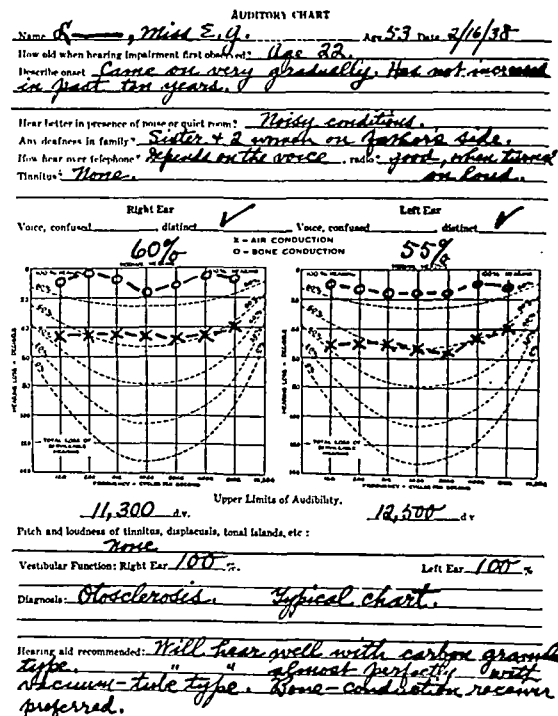 AUDITORY CHART
Name L——, Miss E. G. Age 53 Date 2/16/38
How old when hearing impairment first observed? Age 22.
Describe onset Came on very gradually. Has not increased
in past ten years.
Hear better in presence of noise or quiet room? Noisy conditions.
Any deafness in family? Sister + 2 women on father's side.
How hear over telephone? Depends on the voice. radio? good, when turned
Tinnitus? None. on loud.
Right Ear Left Ear
Voice, confused distinct ✓ Voice, confused distinct ✓
60% X - AIR CONDUCTION 55%
O - BONE CONDUCTION
100% HEARING 100% HEARING
HEARING LOSS - DECIBELS HEARING LOSS - DECIBELS
TOTAL LOSS OF SERVICEABLE HEARING TOTAL LOSS OF SERVICEABLE HEARING
FREQUENCY - CYCLES PER SECOND FREQUENCY - CYCLES PER SECOND
Upper Limits of Audibility.
11,300 d.v. 12,500 d.v.
Pitch and loudness of tinnitus, displacusis, tonal islands, etc:
None
Vestibular Function: Right Ear 100 %. Left Ear 100 %
Diagnosis: Otosclerosis. Typical chart.
Hearing aid recommended: Will hear well with carbon granule
type. " " almost perfectly with
vacuum-tube type. Bone-conduction receiver
preferred.